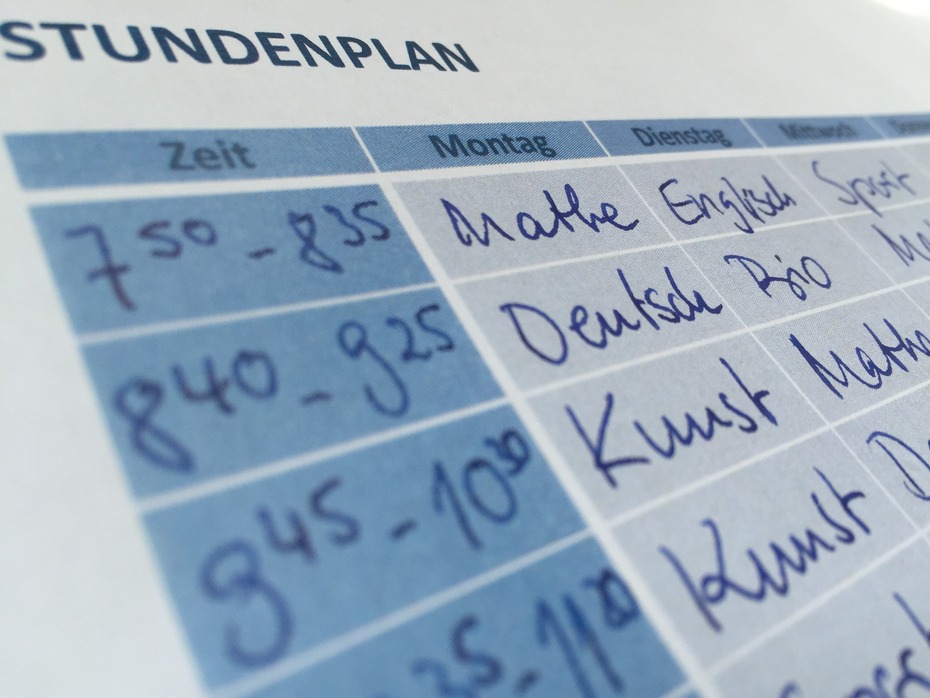 STUNDENPLAN
Zeit Montag Dienstag Mittwoch
7 50 - 8 35 Mathe Englisch Sport
8 40 - 9 25 Deutsch Bio
9 45 - 10 30 Kunst Mathe
35 - 11 20 Kunst